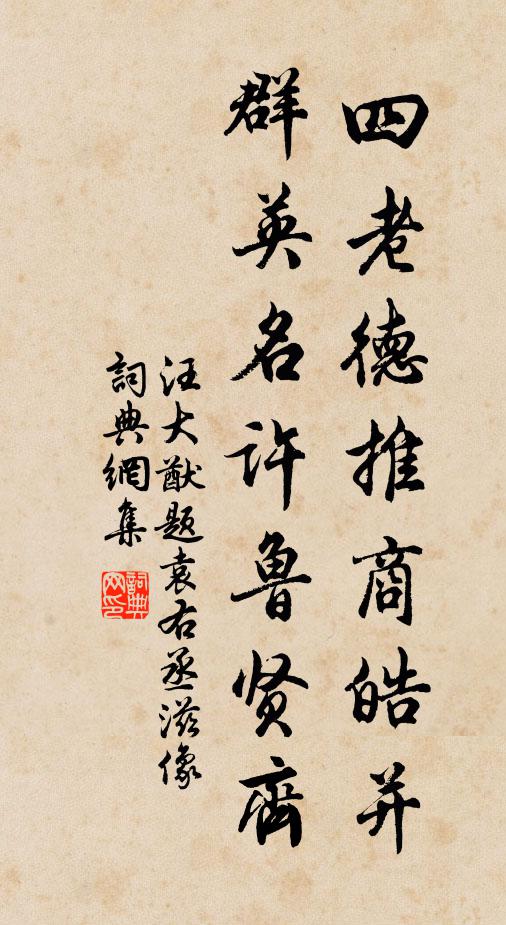 四老德推商皓并
群英名许鲁贤齊
汪大猷题袁右丞滋像
詞典網集
詞典網印